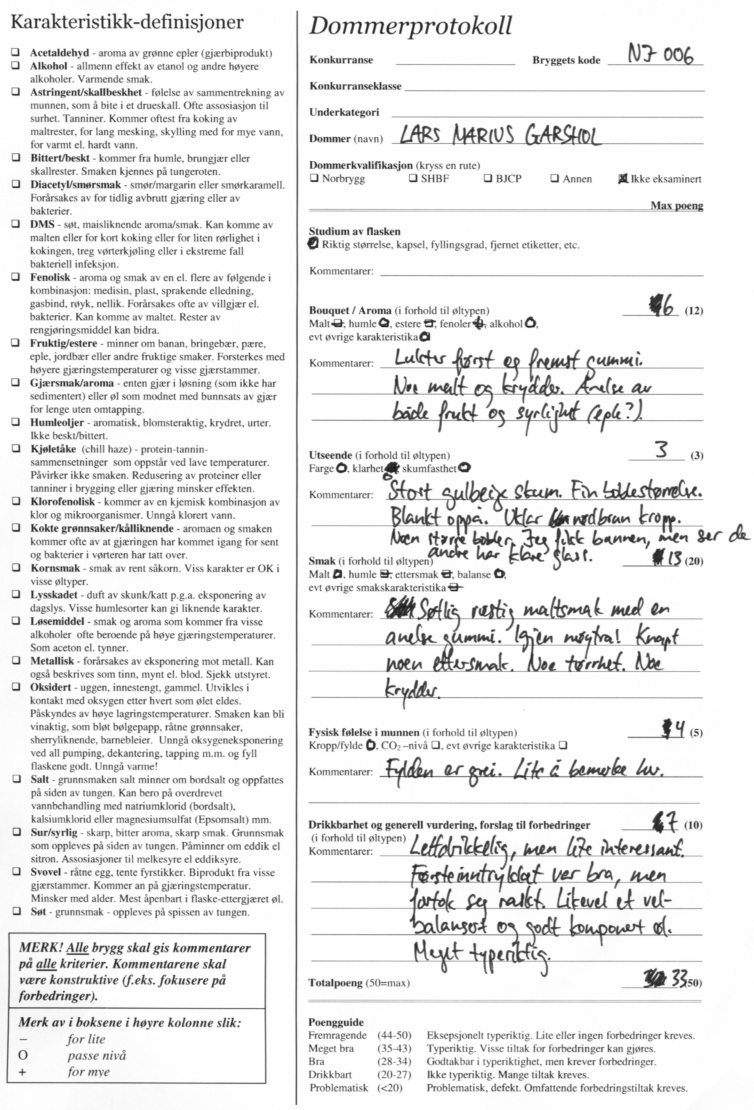 Karakteristikk-definisjoner
❏ Acetaldehyd - aroma av grønne epler (gjærbiprodukt)
❏ Alkohol - allmenn effekt av etanol og andre høyere
alkoholer. Varmende smak.
❏ Astringent/skallbeskhet - følelse av sammentrekning av
munnen, som å bite i et drueskall. Ofte assosiasjon til
surhet. Tanniner. Kommer oftest fra koking av
maltrester, for lang mesking, skylling med for mye vann,
for varmt el. hardt vann.
❏ Bittert/beskt - kommer fra humle, brungjær eller
skallrester. Smaken kjennes på tungeroten.
❏ Diacetyl/smørsmak - smør/margarin eller smørkaramell.
Forårsakes av for tidlig avbrutt gjæring eller av
bakterier.
❏ DMS - søt, maisliknende aroma/smak. Kan komme av
malten eller for kort koking eller for liten rørlighet i
kokingen, treg vørterkjøling eller i ekstreme fall
bakteriell infeksjon.
❏ Fenolisk - aroma og smak av en el. flere av følgende i
kombinasjon: medisin, plast, sprakende elledning,
gasbind, røyk, nellik. Forårsakes ofte av villgjær el.
bakterier. Kan komme av maltet. Rester av
rengjøringsmiddel kan bidra.
❏ Fruktig/estere - minner om banan, bringebær, pære,
eple, jordbær eller andre fruktige smaker. Forsterkes med
høyere gjæringstemperaturer og visse gjærstammer.
❏ Gjærsmak/aroma - enten gjær i løsning (som ikke har
sedimentert) eller øl som modnet med bunnsats av gjær
for lenge uten omtapping.
❏ Humleoljer - aromatisk, blomsteraktig, krydret, urter.
Ikke beskt/bittert.
❏ Kjøletåke (chill haze) - protein-tannin-
sammensetninger som oppstår ved lave temperaturer.
Påvirker ikke smaken. Redusering av proteiner eller
tanniner i brygging eller gjæring minsker effekten.
❏ Klorofenolisk - kommer av en kjemisk kombinasjon av
klor og mikroorganismer. Unngå klorert vann.
❏ Kokte grønnsaker/kålliknende - aromaen og smaken
kommer ofte av at gjæringen har kommet igang for sent
og bakterier i vørteren har tatt over.
❏ Kornsmak - smak av rent såkorn. Viss karakter er OK i
visse øltyper.
❏ Lysskadet - duft av skunk/katt p.g.a. eksponering av
dagslys. Visse humlesorter kan gi liknende karakter.
❏ Løsemiddel - smak og aroma som kommer fra visse
alkoholer ofte beroende på høye gjæringstemperaturer.
Som aceton el. tynner.
❏ Metallisk - forårsakes av eksponering mot metall. Kan
også beskrives som tinn, mynt el. blod. Sjekk utstyret.
❏ Oksidert - uggen, innestengt, gammel. Utvikles i
kontakt med oksygen etter hvert som ølet eldes.
Påskyndes av høye lagringstemperaturer. Smaken kan bli
vinaktig, som bløt bølgepapp, råtne grønnsaker,
sherryliknende, barnebleier. Unngå oksygeneksponering
ved all pumping, dekantering, tapping m.m. og fyll
flaskene godt. Unngå varme!
❏ Salt - grunnsmaken salt minner om bordsalt og oppfattes
på siden av tungen. Kan bero på overdrevet
vannbehandling med natriumklorid (bordsalt),
kalsiumklorid eller magnesiumsulfat (Epsomsalt) mm.
❏ Sur/syrlig - skarp, bitter aroma, skarp smak. Grunnsmak
som oppleves på siden av tungen. Påminner om eddik el
sitron. Assosiasjoner til melkesyre el eddiksyre.
❏ Svovel - råtne egg, tente fyrstikker. Biprodukt fra visse
gjærstammer. Kommer an på gjæringstemperatur.
Minsker med alder. Mest åpenbart i flaske-ettergjæret øl.
❏ Søt - grunnsmak - oppleves på spissen av tungen.
MERK! Alle brygg skal gis kommentarer
på alle kriterier. Kommentarene skal
være konstruktive (f.eks. fokusere på
forbedringer).
Merk av i boksene i høyre kolonne slik:
– for lite
O passe nivå
+ for mye
Dommerprotokoll
Konkurranse Bryggets kode NJ 006
Konkurranseklasse
Underkategori
Dommer (navn) LARS MARIUS GARSHOL
Dommerkvalifikasjon (kryss en rute)
❏ Norbrygg ❏ SHBF ❏ BJCP ❏ Annen ☒ Ikke eksaminert
Max poeng
Studium av flasken
Riktig størrelse, kapsel, fyllingsgrad, fjernet etiketter, etc.
Kommentarer:
Bouquet / Aroma (i forhold til øltypen) 6 (12)
Malt –, humle O, estere –, fenoler +, alkohol O,
evt øvrige karakteristika O
Kommentarer: Lukter først og fremst gummi.
Noe malt og krydder. Anelse av
både frukt og syrlighet (eple?).
Utseende (i forhold til øltypen) 3 (3)
Farge O, klarhet skumfasthet O
Kommentarer: Stort gulbeige skum. Fin boblestørrelse.
Blankt oppå. Uklar rødbrun kropp.
Noen større bobler. Jeg fikk bunnen, men ser de
andre har klare glass.
Smak (i forhold til øltypen) 13 (20)
Malt O, humle –, ettersmak –, balanse O,
evt øvrige smakskarakteristika –
Kommentarer: Søtlig røstig maltsmak med en
anelse gummi. Igjen nøytral. Knapt
noen ettersmak. Noe tørrhet. Noe
krydder.
Fysisk følelse i munnen (i forhold til øltypen) 4 (5)
Kropp/fylde O, CO₂ –nivå ❏, evt øvrige karakteristika ❏
Kommentarer: Fylden er grei. Lite å bemerke her.
Drikkbarhet og generell vurdering, forslag til forbedringer 7 (10)
(i forhold til øltypen)
Kommentarer: Lettdrikkelig, men lite interessant.
Førsteinntrykket var bra, men
fortok seg raskt. Likevel et vel-
balansert og godt komponert øl.
Meget typeriktig.
Totalpoeng (50=max) 33 50)
Poengguide
Fremragende (44-50) Eksepsjonelt typeriktig. Lite eller ingen forbedringer kreves.
Meget bra (35-43) Typeriktig. Visse tiltak for forbedringer kan gjøres.
Bra (28-34) Godtakbar i typeriktighet, men krever forbedringer.
Drikkbart (20-27) Ikke typeriktig. Mange tiltak kreves.
Problematisk (<20) Problematisk, defekt. Omfattende forbedringstiltak kreves.